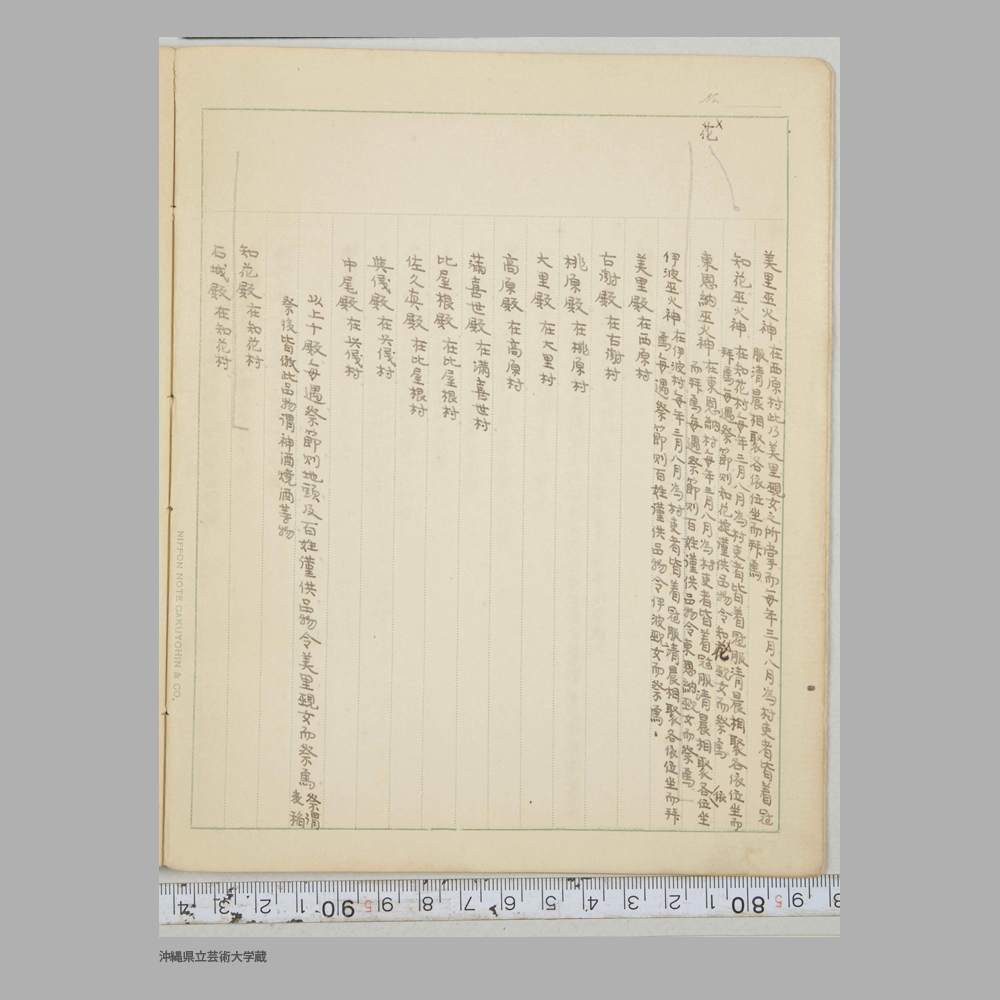 No.
花
美里巫火神 在西原村此乃美里覡女之所掌而毎年三月八月為村吏者皆着冠
服清晨相聚各依位坐而拜焉
知花巫火神 在知花村毎年三月八月為村吏者皆着冠服清晨相聚各依位坐而
拜焉毎遇祭節則知花掟謹供品物令知花覡女而祭焉
東恩納巫火神 在東恩納村毎年三月八月為村吏者皆着冠服清晨相聚各依位坐
而拜焉毎遇祭節則百姓謹供品物令東恩納覡女而祭焉
伊波巫火神 在伊波村毎年三月八月為村吏者皆着冠服清晨相聚各依位坐而拜
焉毎遇祭節則百姓謹供品物令伊波覡女而祭焉、
美里殿 在西原村
古謝殿 在古謝村
桃原殿 在桃原村
大里殿 在大里村
高原殿 在高原村
満喜世殿 在満喜世村
比屋根殿 在比屋根村
佐久真殿 在比屋根村
與儀殿 在與儀村
中尾殿 在與儀村
以上十殿毎遇祭節則地頭及百姓謹供品物令美里覡女而祭焉 祭謂麦稲
祭後皆倣此品物謂神酒焼酒等物
知花殿 在知花村
石城殿 在知花村
NIPPON NOTE GAKUYOHIN & CO.
4 3 2 1 90 9 8 7 6 5 4 3 2 1 80 9 8
沖縄県立芸術大学蔵